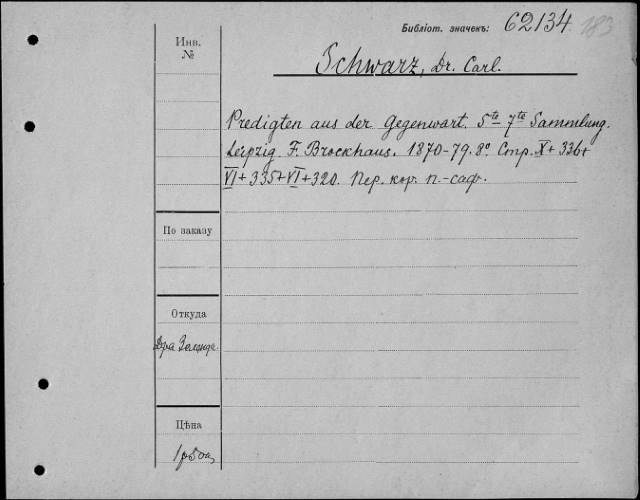 Библіот. значекъ: 62134 183
Инв.
№
Schwarz, Dr. Carl.
Predigten aus der Gegenwart. 5te- 7te Sammlung.
Leipzig. F. Brockhaus. 1870-79. 8°. Стр. X+336+
VI+335+VI+320. Пер. кор. п.-саф.
По заказу
Откуда
Д-ра
Цѣна